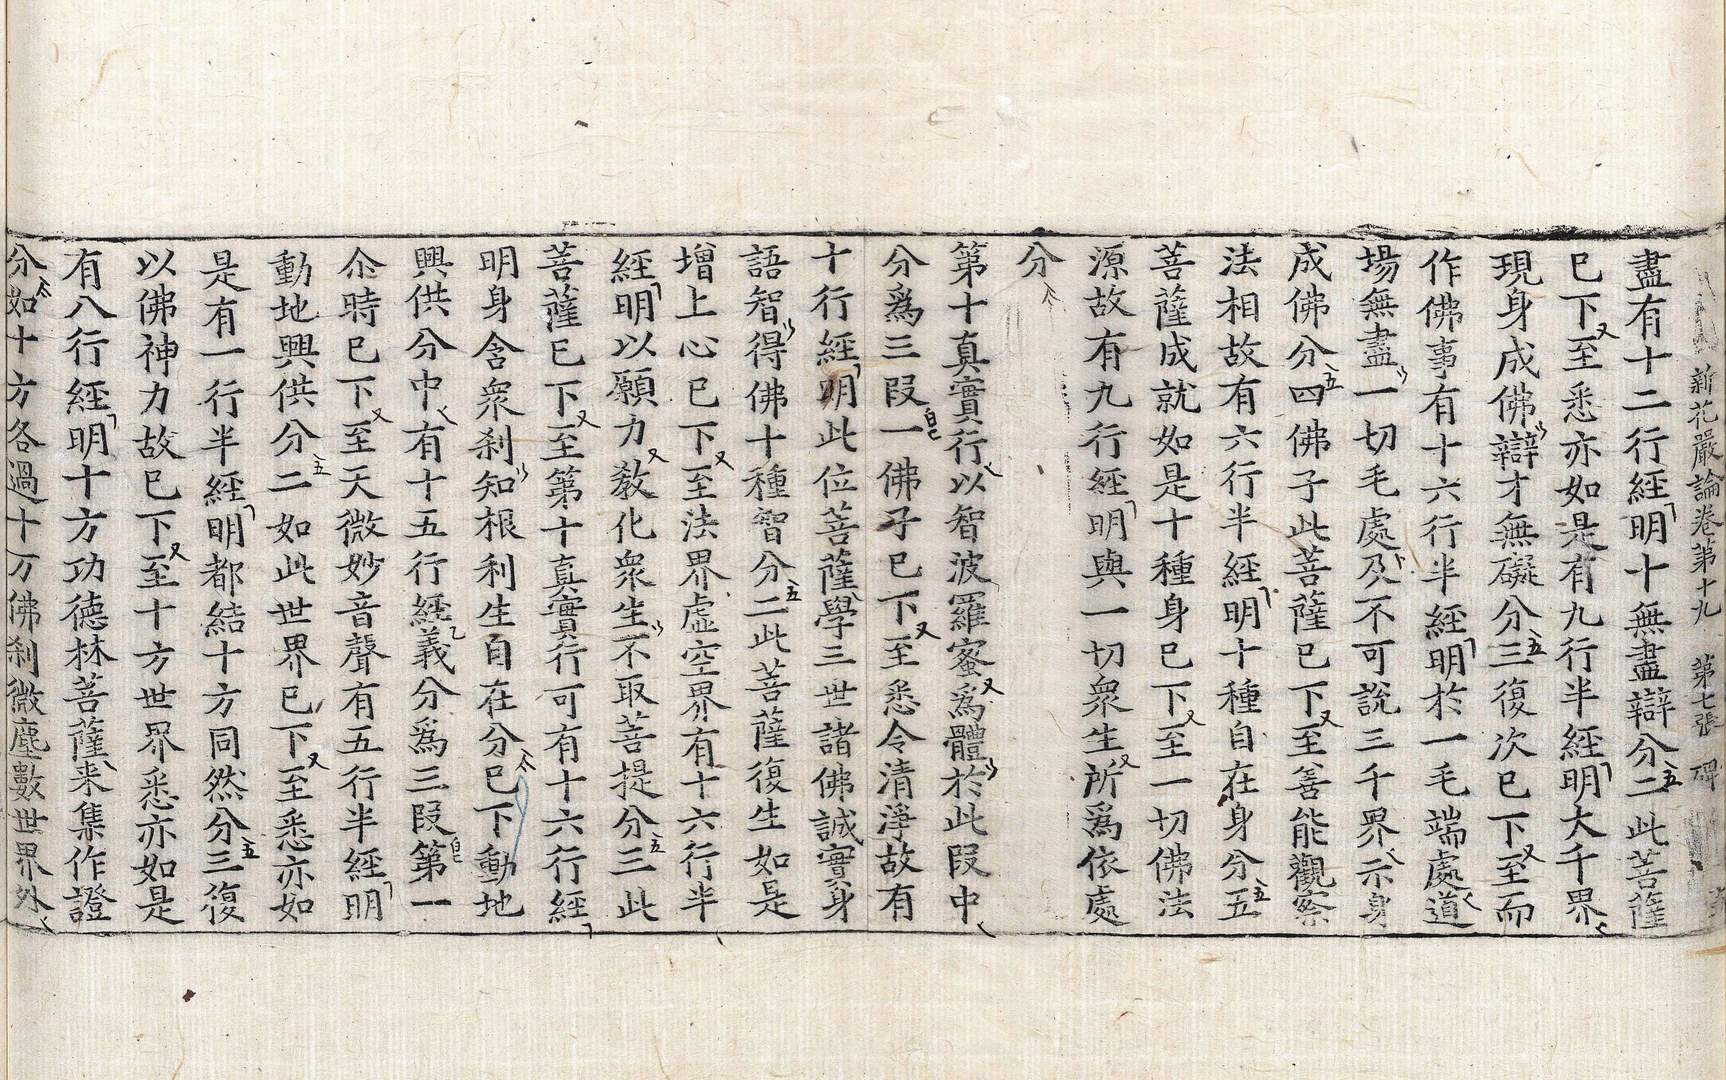 新花嚴論卷第十九 第七張 碑
盡有十二行經明十無盡辯分二此菩薩
巳下至悉亦如是有九行半經明大千界
現身成佛辯才無礙分三復次巳下至而
作佛事有十六行半經明於一毛端處道
場無盡一切毛處及不可說三千界示身
成佛分四佛子此菩薩巳下至善能觀察
法相故有六行半經明十種自在身分五
菩薩成就如是十種身巳下至一切佛法
源故有九行經明與一切衆生所爲依處
分
第十真實行以智波羅蜜爲體於此叚中
分爲三叚一佛子巳下至悉令清淨故有
十行經明此位菩薩學三世諸佛誠實身
語智得佛十種智分二此菩薩復生如是
增上心巳下至法界虛空界有十六行半
經明以願力教化衆生不取菩提分三此
菩薩巳下至第十真實行可有十六行經
明身含衆剎知根利生自在分巳下動地
興供分中有十五行經義分爲三叚第一
尒時巳下至天微妙音聲有五行半經明
動地興供分二如此世界巳下至悉亦如
是有一行半經明都結十方同然分三復
以佛神力故巳下至十方世界悉亦如是
有八行經明十方功德林菩薩来集作證
分如十方各過十万佛剎微塵數世界外